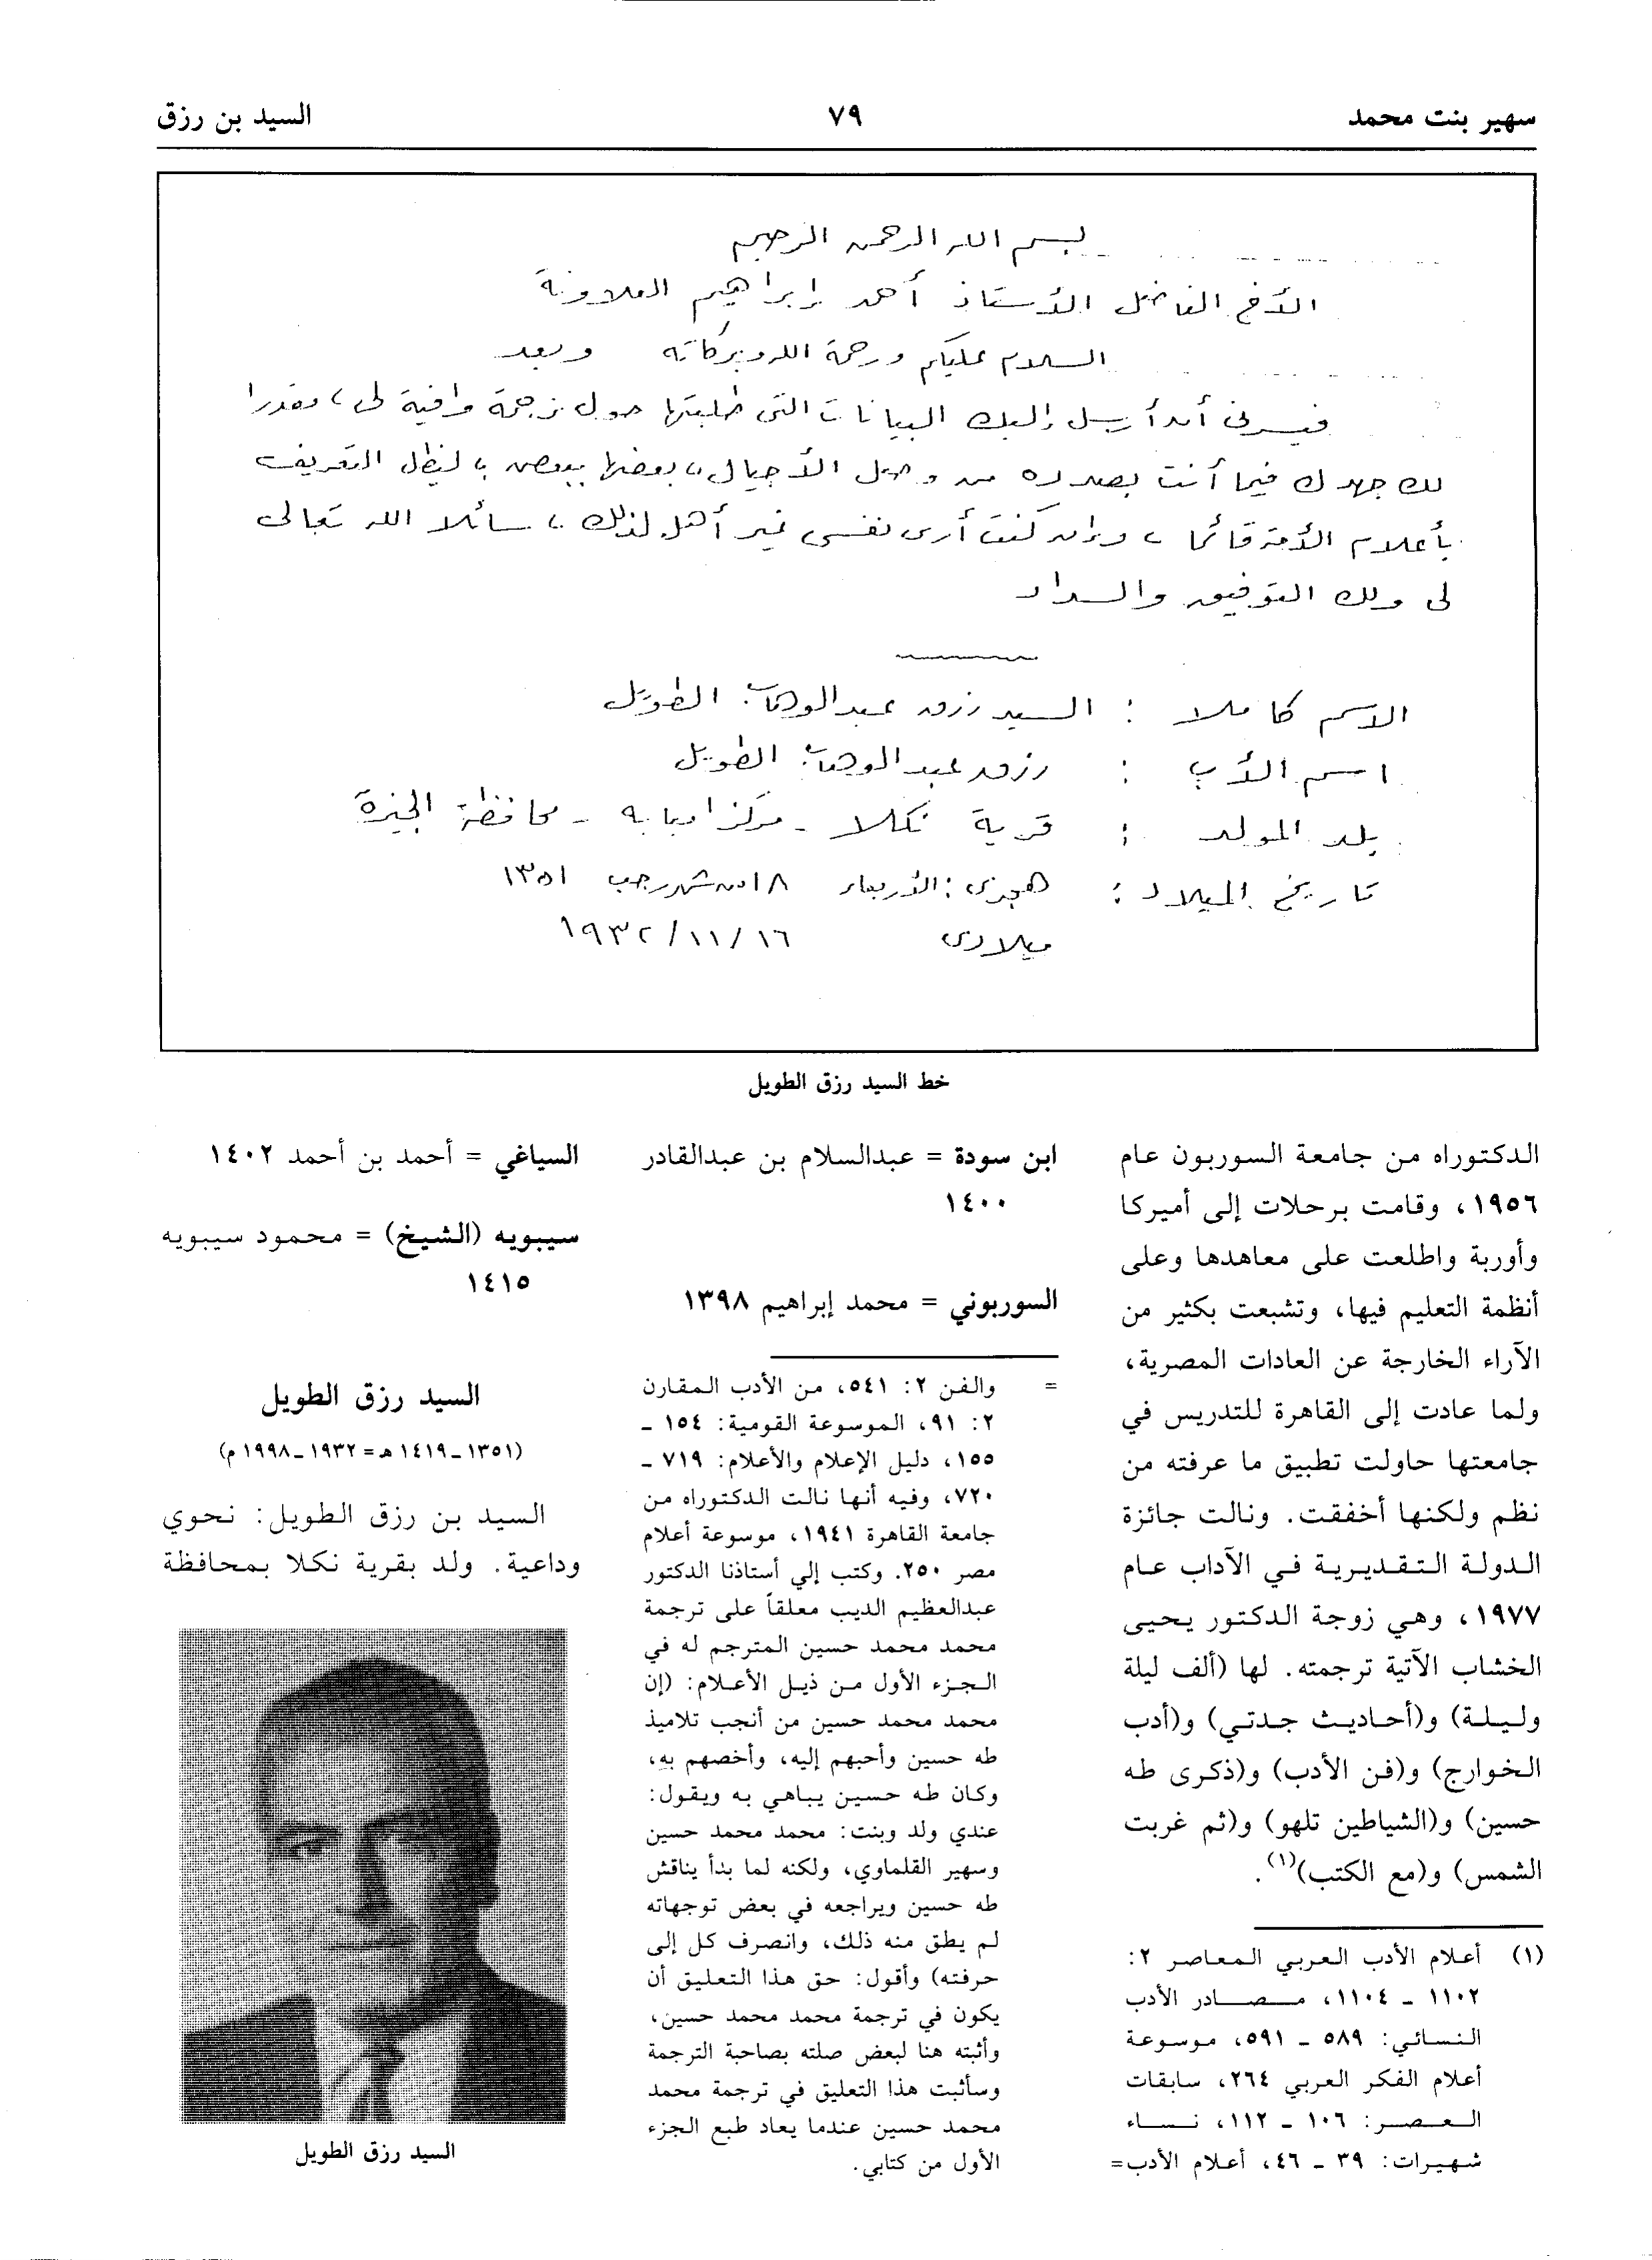 سهير بنت محمد
٧٩
السيد بن رزق
بسم الله الرحمن الرحيم
الأخ الفاضل الأستاذ أحمد إبراهيم العلاونة
السلام عليكم ورحمة الله وبركاته وبعد
فيسرني أن أرسل إليك البيانات التي طلبتها حول ترجمة وافية لي، مقدرا
لك جهدك فيما أنت بصدده من وصل الأجيال، بعضها ببعض، ليظل التعريف
بأعلام الأمة قائما، وإن كنت أرى نفسي غير أهل لذلك، سائلا الله تعالى
لي ولك التوفيق والسداد
الاسم كاملا : السيد رزق عبد الوهاب الطويل
اسم الأب : رزق عبد الوهاب الطويل
بلد المولد : قرية نكلا - مركز امبابه - محافظة الجيزة
تاريخ الميلاد : هجري : الأربعاء ١٨ من شهر رجب ١٣٥١
ميلادى ١٩٣٢/١١/١٦
خط السيد رزق الطويل
الدكتوراه من جامعة السوربون عام
١٩٥٦، وقامت برحلات إلى أميركا
وأوربة واطلعت على معاهدها وعلى
أنظمة التعليم فيها، وتشبعت بكثير من
الآراء الخارجة عن العادات المصرية،
ولما عادت إلى القاهرة للتدريس في
جامعتها حاولت تطبيق ما عرفته من
نظم ولكنها أخفقت. ونالت جائزة
الدولة التقديرية في الآداب عام
١٩٧٧، وهي زوجة الدكتور يحيى
الخشاب الآتية ترجمته. لها (ألف ليلة
وليلة) و(أحاديث جدتي) و(أدب
الخوارج) و(فن الأدب) و(ذكرى طه
حسين) و(الشياطين تلهو) و(ثم غربت
الشمس) و(مع الكتب)(١).
(١) أعلام الأدب العربي المعاصر ٢:
١١٠٢ ـ ١١٠٤، مصادر الأدب
النسائي: ٥٨٩ ـ ٥٩١، موسوعة
أعلام الفكر العربي ٢٦٤، سابقات
العصر: ١٠٦ ـ ١١٢، نساء
شهيرات: ٣٩ ـ ٤٦، أعلام الأدب=
ابن سودة = عبدالسلام بن عبدالقادر
١٤٠٠
السوربوني = محمد إبراهيم ١٣٩٨
= والفن ٢: ٥٤١، من الأدب المقارن
٢: ٩١، الموسوعة القومية: ١٥٤ ـ
١٥٥، دليل الإعلام والأعلام: ٧١٩ ـ
٧٢٠، وفيه أنها نالت الدكتوراه من
جامعة القاهرة ١٩٤١، موسوعة أعلام
مصر ٢٥٠. وكتب إلي أستاذنا الدكتور
عبدالعظيم الديب معلقاً على ترجمة
محمد محمد حسين المترجم له في
الجزء الأول من ذيل الأعلام: (إن
محمد محمد حسين من أنجب تلاميذ
طه حسين وأحبهم إليه، وأخصهم به،
وكان طه حسين يباهي به ويقول:
عندي ولد وبنت: محمد محمد حسين
وسهير القلماوي، ولكنه لما بدأ يناقش
طه حسين ويراجعه في بعض توجهاته
لم يطق منه ذلك، وانصرف كل إلى
حرفته) وأقول: حق هذا التعليق أن
يكون في ترجمة محمد محمد حسين،
وأثبته هنا لبعض صلته بصاحبة الترجمة
وسأثبت هذا التعليق في ترجمة محمد
محمد حسين عندما يعاد طبع الجزء
الأول من كتابي.
السياغي = أحمد بن أحمد ١٤٠٢
سيبويه (الشيخ) = محمود سيبويه
١٤١٥
السيد رزق الطويل
(١٣٥١ـ١٤١٩ هـ=١٩٣٢ـ١٩٩٨ م)
السيد بن رزق الطويل: نحوي
وداعية. ولد بقرية نكلا بمحافظة
السيد رزق الطويل